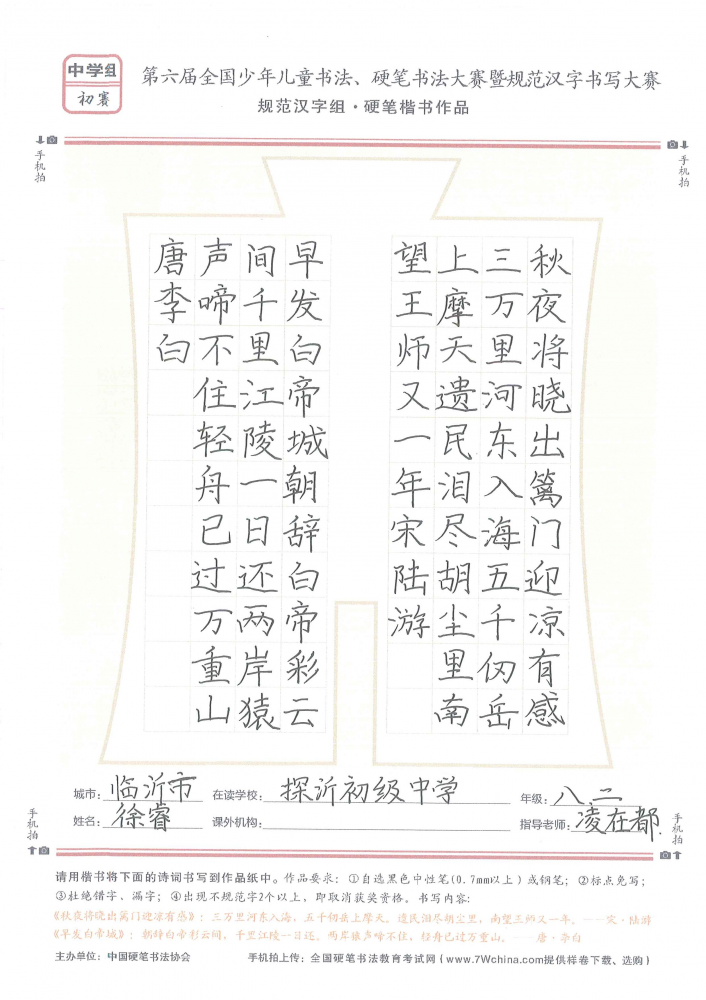 中学组
初赛
第六届全国少年儿童书法、硬笔书法大赛暨规范汉字书写大赛
规范汉字组·硬笔楷书作品
手机拍
手机拍
秋夜将晓出篱门迎凉有感
三万里河东入海五千仞岳
上摩天遗民泪尽胡尘里南
望王师又一年宋陆游
早发白帝城朝辞白帝彩云
间千里江陵一日还两岸猿
声啼不住轻舟已过万重山
唐李白
城市：临沂市 在读学校：探沂初级中学 年级：八.二
姓名：徐睿 课外机构： 指导老师：凌在都
手机拍
手机拍
请用楷书将下面的诗词书写到作品纸中。作品要求：①自选黑色中性笔(0.7mm以上)或钢笔；②标点免写；
③杜绝错字、漏字；④出现不规范字2个以上，即取消获奖资格。书写内容：
《秋夜将晓出篱门迎凉有感》：三万里河东入海，五千仞岳上摩天。遗民泪尽胡尘里，南望王师又一年。——宋·陆游
《早发白帝城》：朝辞白帝彩云间，千里江陵一日还。两岸猿声啼不住，轻舟已过万重山。——唐·李白
主办单位：中国硬笔书法协会 手机拍上传：全国硬笔书法教育考试网（www.7Wchina.com提供样卷下载、选购）